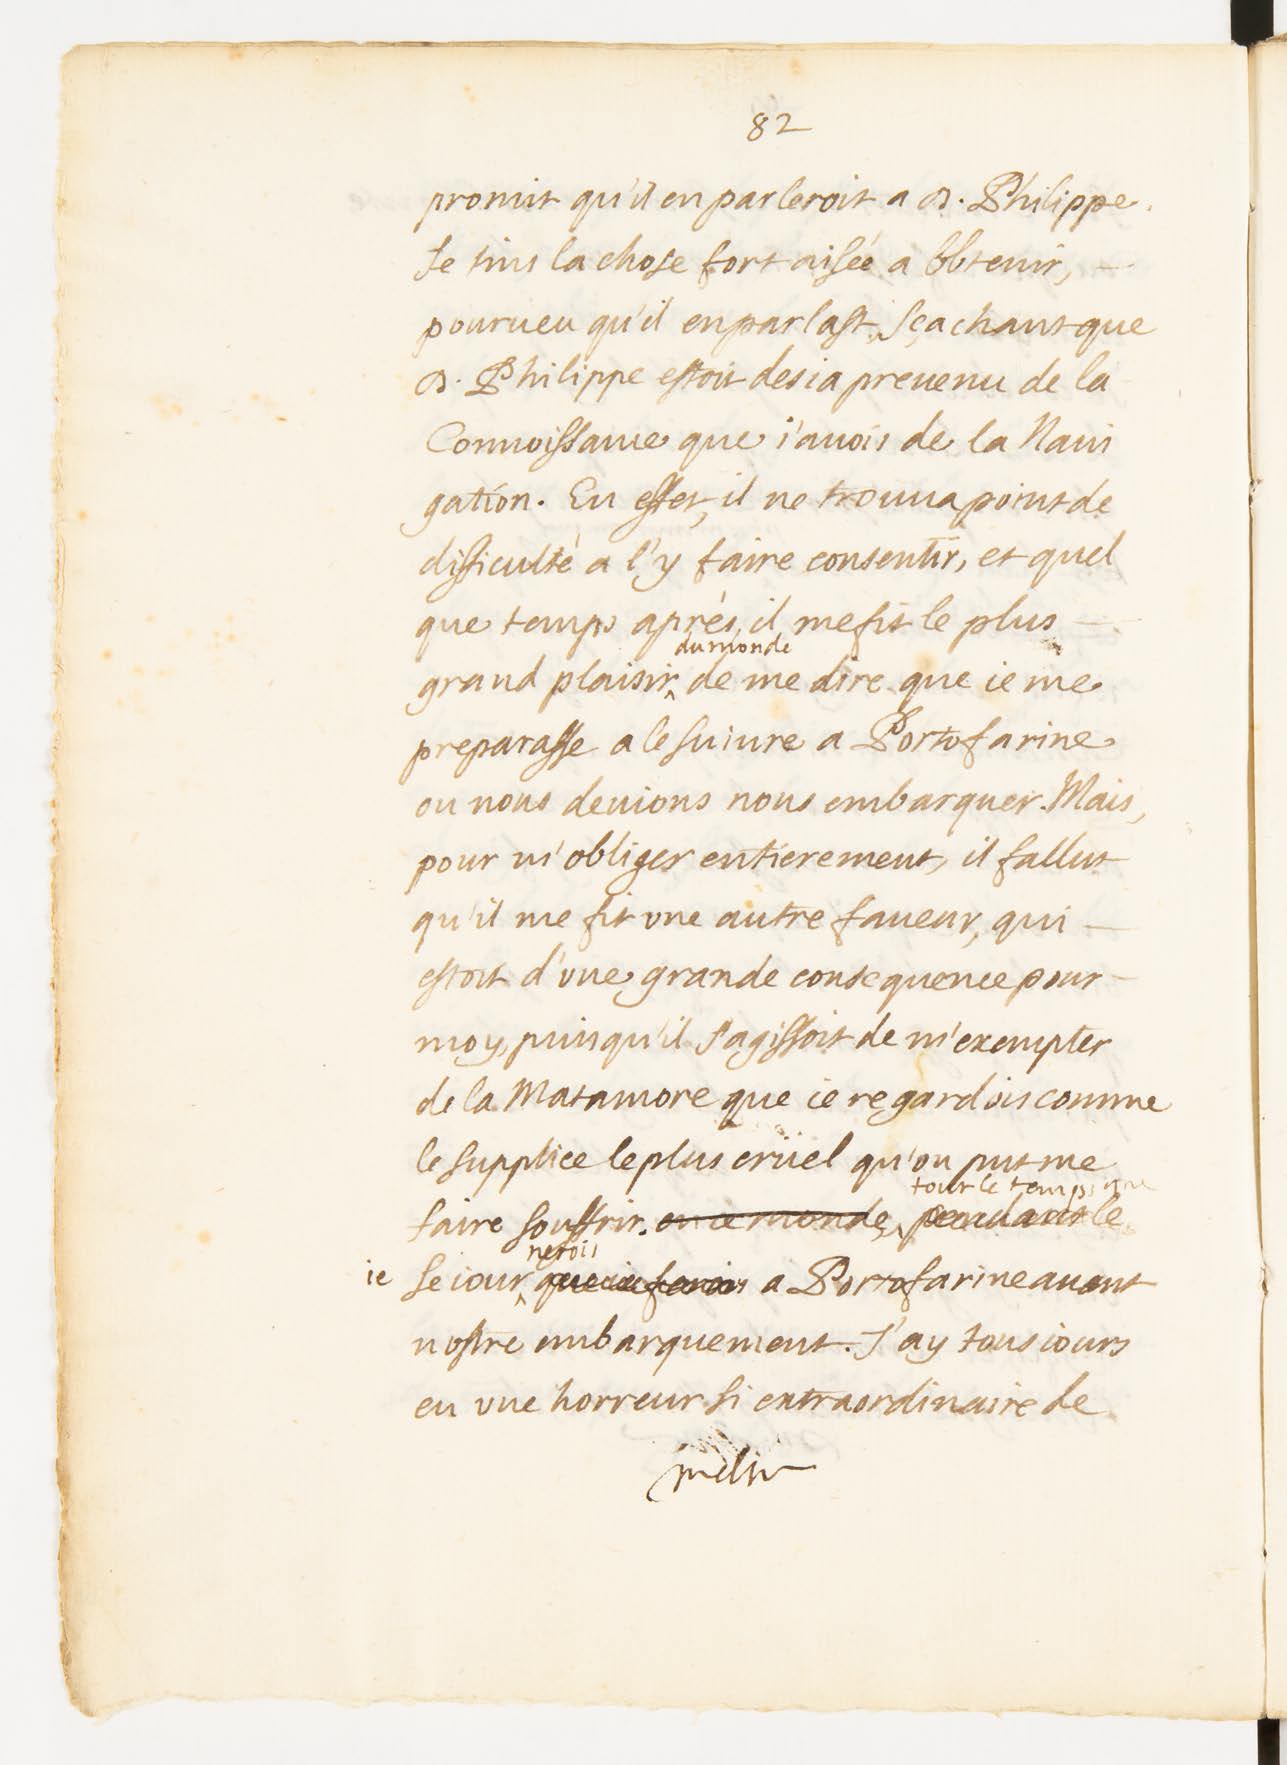 82
promit qu'il en parleroit a D. Philippe.
Je tins la chose fort aisée a obtenir, —
pourueu qu'il en parlast, sçachant que
D. Philippe estoit desia preuenu de la
Connoissance que i'auois de la Naui
gation. En effet, il ne trouua point de
difficulté a l'y faire consentir, et quel
que temps aprés, il me fit le plus —
du monde
grand plaisir de me dire que ie me
preparasse a le suiure a Portofarine
ou nous deuions nous embarquer. Mais,
pour m'obliger entierement, il fallut
qu'il me fit vne autre faueur, qui —
estoit d'vne grande consequence pour —
moy, puisqu'il s'agissoit de m'exempter
de la Matamore que ie regardois comme
le supplice le plus crüel qu'on put me
tout le temps que
faire souffrir. en ce monde, pendant le
nerois
ie seiour que ie ferois a Portofarine auant
nostre embarquement. J'ay tousiours
eu vne horreur si extraordinaire de